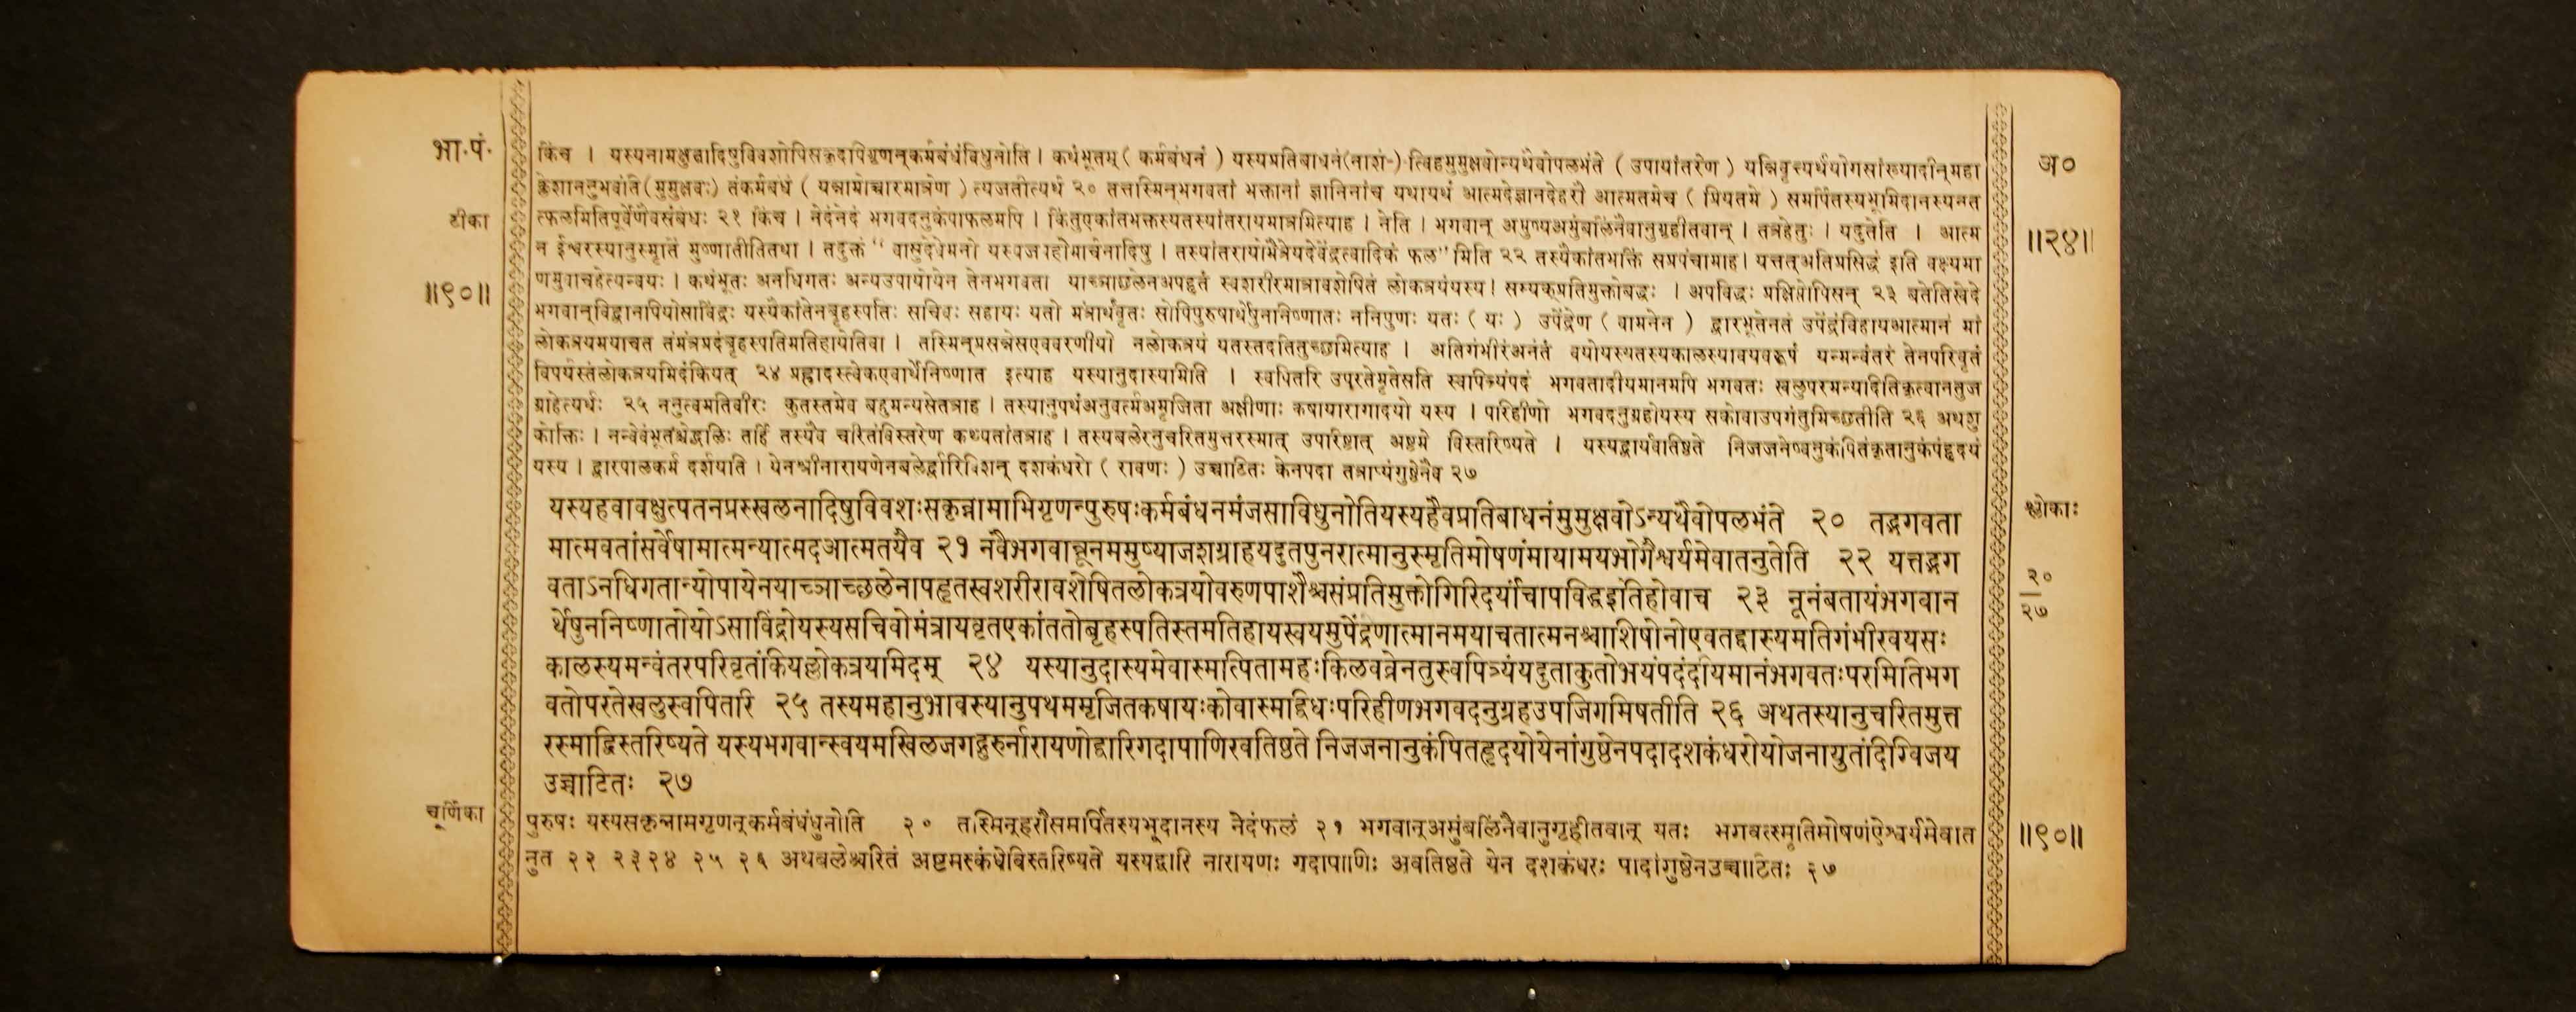 भा.पं.
अ०
किंच । यस्यनामक्षुतादिषुविवशोपिसकृदपिगृणन्कर्मबंधंविधुनोति । कथंभूतम् ( कर्मबंधनं ) यस्यप्रतिबाधनं(नाशं-) त्विहमुमुक्षवोन्यथैवोपलभंते ( उपायांतरेण ) यन्निवृत्त्यर्थयोगसांख्यादीन्महा
क्लेशाननुभवंति(मुमुक्षवः) तंकर्मबंधं ( यन्नामोच्चारमात्रेण ) त्यजतीत्यर्थः २० तत्तस्मिन्भगवतां भक्तानां ज्ञानिनांच यथायथं आत्मदेज्ञानदेहरौ आत्मतमेच ( प्रियतमे ) समर्पितस्यभूमिदानस्यनत
टीका
त्फलमितिपूर्वेणैवसंबंधः २१ किंच । नेदंनेदं भगवदनुकंपाफलमपि । किंतुएकांतभक्तस्यतस्यांतरायमात्रमित्याह । नेति । भगवान् अमुष्यअमुंबलिंनैवानुगृहीतवान् । तत्रहेतुः । यदुतेति । आत्म
॥२४॥
न ईश्वरस्यानुस्मृतिं मुष्णातीतितथा । तदुक्तं “ वासुदेवेमनो यस्यजपहोमार्चनादिषु । तस्यांतरायोमैत्रेयदेवेंद्रत्वादिकं फल” मिति २२ तस्यैकांतभक्तिं सप्रपंचामाह । यत्तत्अतिप्रसिद्धं इति वक्ष्यमा
॥९०॥
णमुवाचहेत्यन्वयः । कथंभूतः अनधिगतः अन्यउपायोयेन तेनभगवता याच्ञाछलेनअपहृतं स्वशरीरमात्रावशेषितं लोकत्रयंयस्य । सम्यक्प्रतिमुक्तोबद्धः । अपविद्धः प्रक्षिप्तोपिसन् २३ बतेतिखेदे
भगवान्विद्वानपियोसाविंद्रः यस्यैकांतेनबृहस्पतिः सचिवः सहायः यतो मंत्रार्थंवृतः सोपिपुरुषार्थेषुनानिष्णातः ननिपुणः यतः ( यः ) उपेंद्रेण ( वामनेन ) द्वारभूतेनतं उपेंद्रंविहायआत्मानं मां
लोकत्रयमयाचत तंमंत्रप्रदंबृहस्पतिमतिहायेतिवा । तस्मिन्प्रसन्नेसएववरणीयो नलोकत्रयं यतस्तदतितुच्छमित्याह । अतिगंभीरंअनंतं वयोयस्यतस्यकालस्यावयवरूपं यन्मन्वंतरं तेनपरिवृत्तं
विपर्यस्तंलोकत्रयमिदंकियत् २४ प्रह्लादस्त्वेकएवार्थेनिष्णात इत्याह यस्यानुदास्यमिति । स्वपितरि उपरतेमृतेसति स्वापित्र्यंपदं भगवतादीयमानमपि भगवतः खलुपरमन्यादितिकृत्वानतुज
ग्राहेत्यर्थः २५ ननुत्वमतिवीरः कुतस्तमेव बहुमन्यसेतत्राह । तस्यानुपथंअनुवर्त्मअमृजिता अक्षीणाः कषायारागादयो यस्य । परिहीणो भगवदनुग्रहोयस्य सकोवाउपगंतुमिच्छतीति २६ अथशु
कोक्तिः । नन्वेवंभूतश्चेद्बलिः तर्हि तस्यैव चरितंविस्तरेण कथ्यतांतत्राह । तस्यबलेरनुचरितमुत्तरस्मात् उपरिष्टात् अष्टमे विस्तरिष्यते । यस्यद्वार्यवतिष्ठते निजजनेष्वनुकंपितंकृतानुकंपंहृदयं
यस्य । द्वारपालकर्म दर्शयति । येनश्रीनारायणेनबलेर्द्वारिविशन् दशकंधरो ( रावणः ) उच्चाटितः केनपदा तत्राप्यंगुष्ठेनैव २७
यस्यहवावक्षुत्पतनप्रस्खलनादिषुविवशःसकृन्नामाभिगृणन्पुरुषःकर्मबंधनमंजसाविधुनोतियस्यहैवप्रतिबाधनंमुमुक्षवोऽन्यथैवोपलभंते २० तद्भगवता
श्लोकाः
मात्मवतांसर्वेषामात्मन्यात्मदआत्मतयैव २१ नवैभगवान्नूनममुष्याजशग्राहयदुतपुनरात्मानुस्मृतिमोषणंमायामयभोगैश्वर्यमेवातनुतेति २२ यत्तद्भग
वताऽनधिगतान्योपायेनयाच्ञाच्छलेनापहृतस्वशरीरावशेषितलोकत्रयोवरुणपाशैश्चसंप्रतिमुक्तोगिरिदर्यांचापविद्धइतिहोवाच २३ नूनंबतायंभगवान
२०
२७
र्थेषुननिष्णातोयोऽसाविंद्रोयस्यसचिवोमंत्रायवृतएकांततोबृहस्पतिस्तमतिहायस्वयमुपेंद्रेणात्मानमयाचतात्मनश्चाशिषोनोएवतद्दास्यमतिगंभीरवयसः
कालस्यमन्वंतरपरिवृत्तंकियल्लोकत्रयमिदम् २४ यस्यानुदास्यमेवास्मत्पितामहःकिलवव्रेनतुस्वपित्र्यंयदुताकुतोभयंपदंदीयमानंभगवतःपरमितिभग
वतोपरतेखलुस्वपितरि २५ तस्यमहानुभावस्यानुपथममृजितकषायःकोवास्मद्विधःपरिहीणभगवदनुग्रहउपजिगमिषतीति २६ अथतस्यानुचरितमुत्त
रस्माद्विस्तरिष्यते यस्यभगवान्स्वयमखिलजगद्गुरुर्नारायणोद्वारिगदापाणिरवतिष्ठते निजजनानुकंपितहृदयोयेनांगुष्ठेनपदादशकंधरोयोजनायुतांदिग्विजय
उच्चाटितः २७
चूर्णिका
पुरुषः यस्यसकृन्नामगृणन्कर्मबंधंधुनोति २० तस्मिन्हरौसमर्पितस्यभूदानस्य नेदंफलं २१ भगवान्अमुंबलिंनैवानुगृहीतवान् यतः भगवत्स्मृतिमोषणंऐश्वर्यमेवात
॥९०॥
नुत २२ २३२४ २५ २६ अथबलेश्चरितं अष्टमस्कंधेविस्तरिष्यते यस्यद्वारि नारायणः गदापाणिः अवतिष्ठते येन दशकंधरः पादांगुष्ठेनउच्चाटितः २७